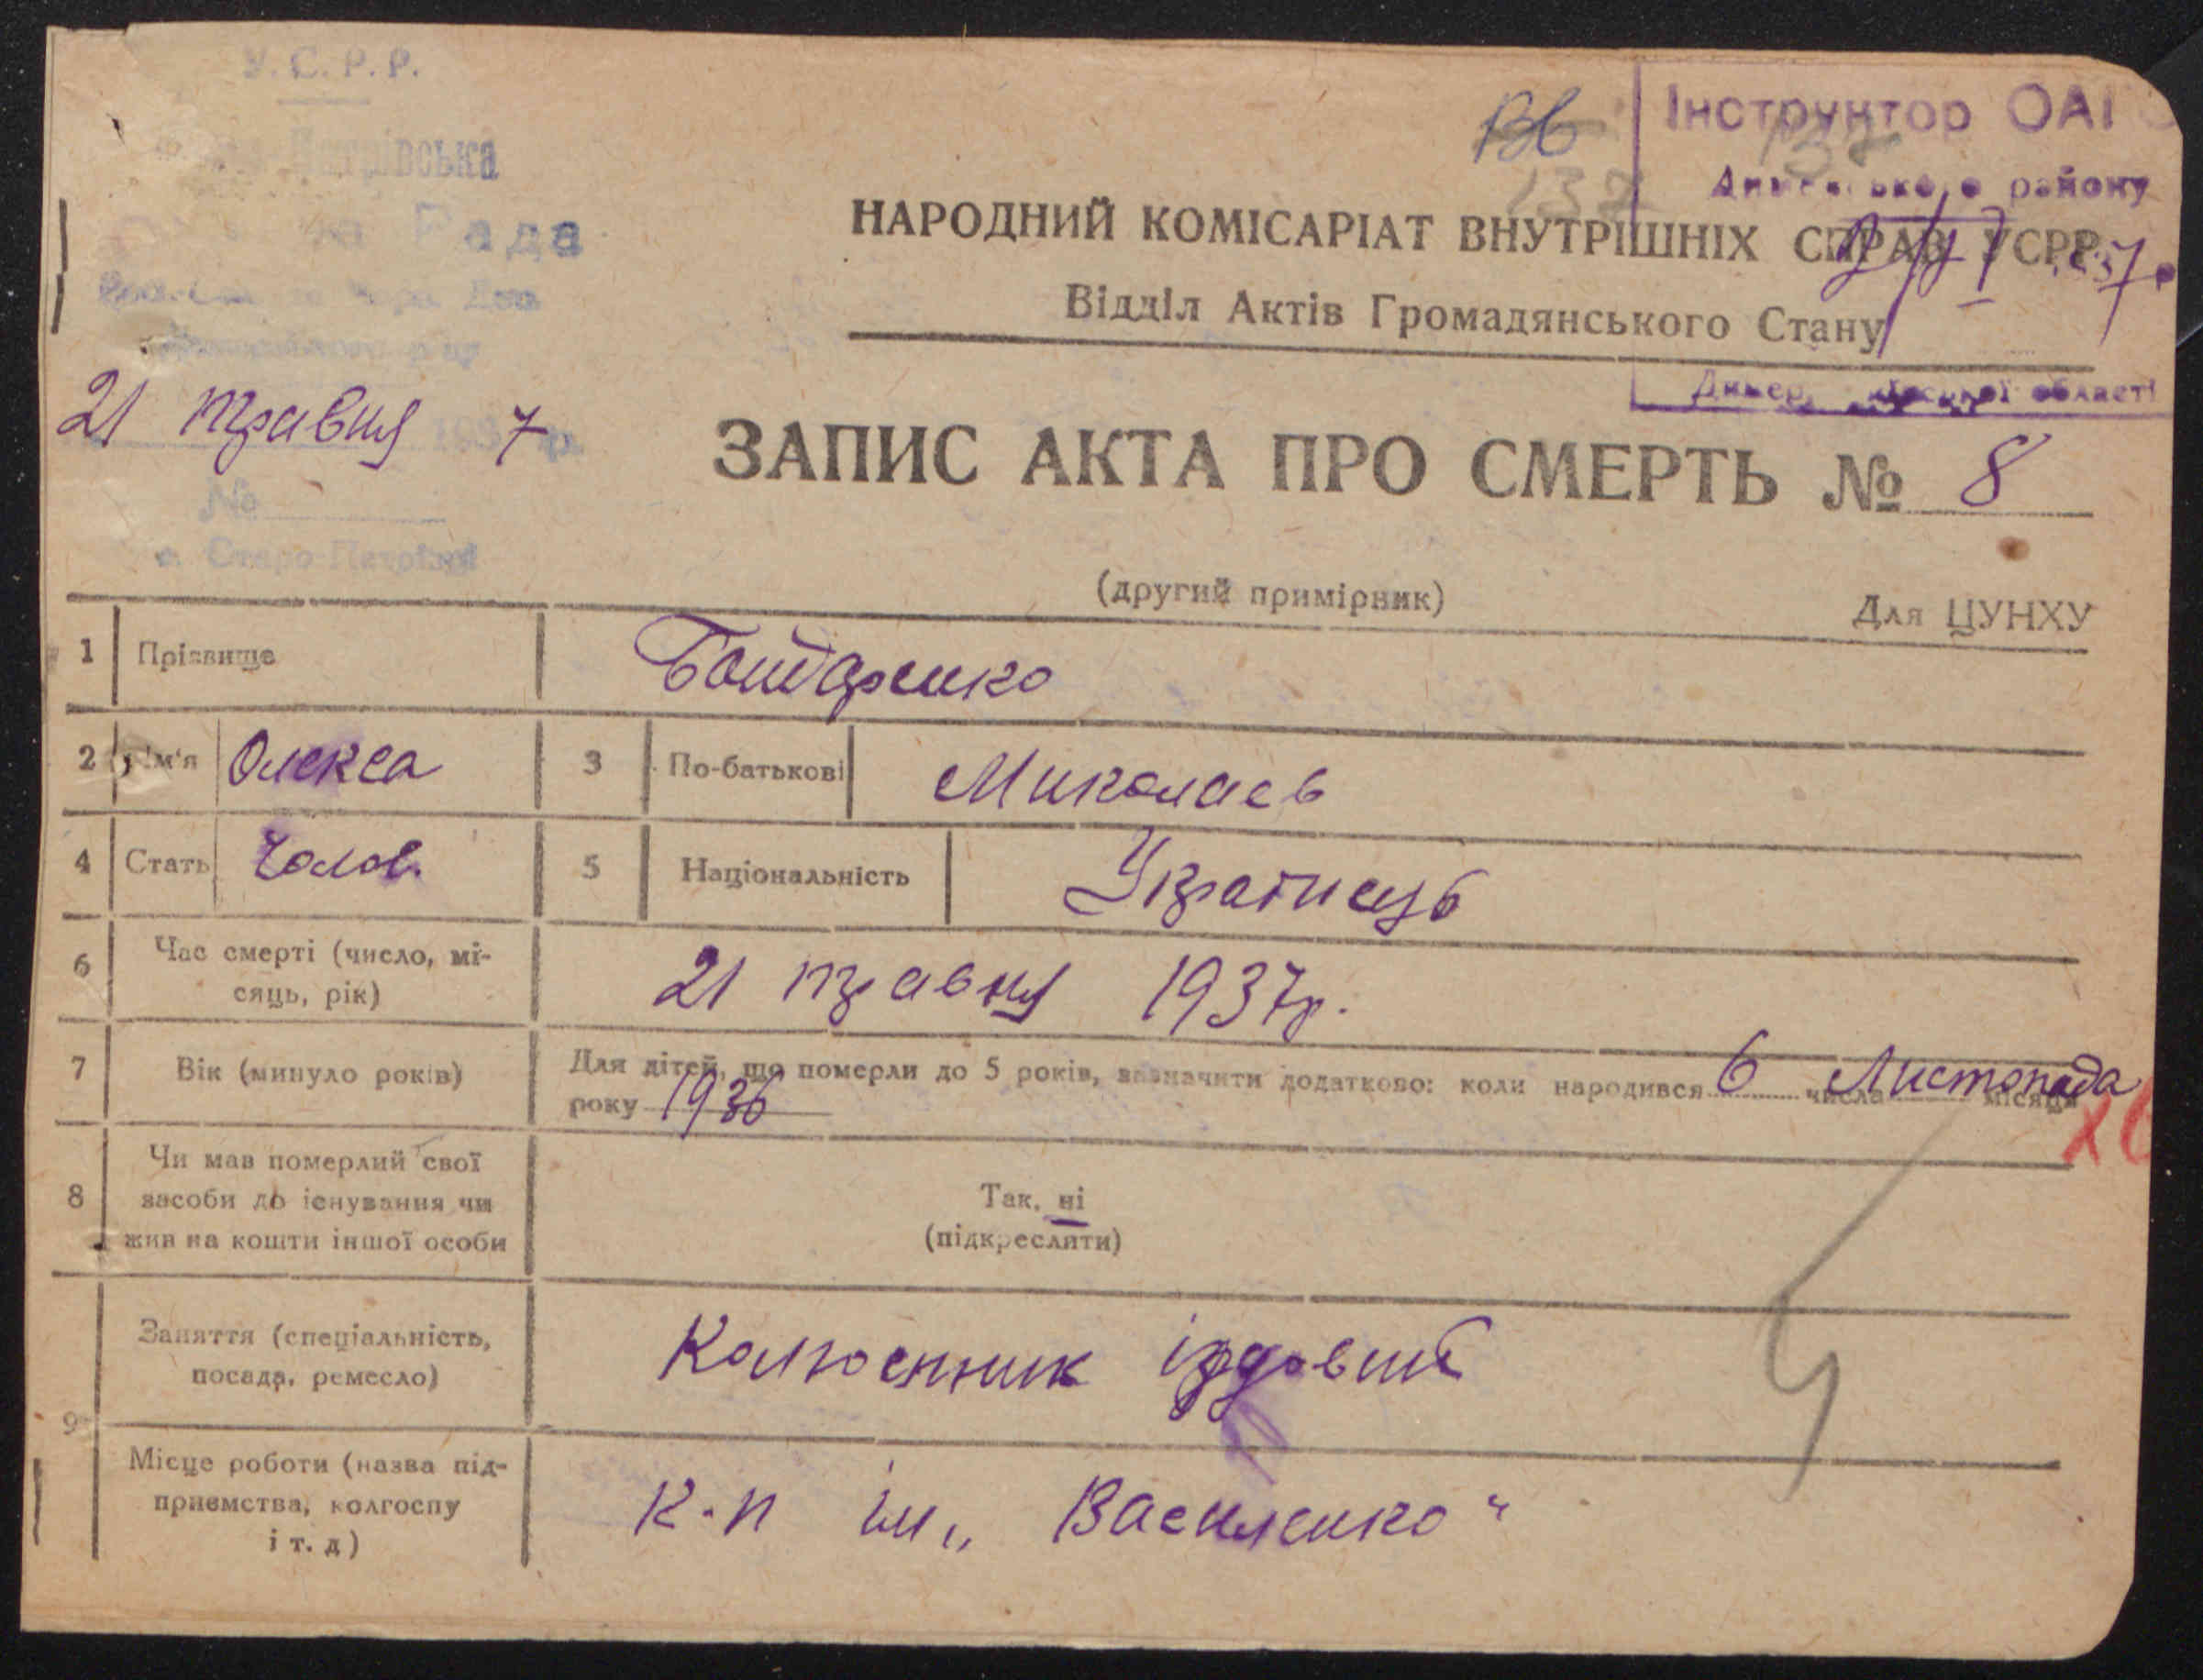 У.С.Р.Р.
Петрівська
Рада
21 травня 1937 р.
№
с. Старо-Петрівці
136
132
137
Інструктор ОАГС
району
НАРОДНИЙ КОМІСАРІАТ ВНУТРІШНІХ СПРАВ УСРР
Відділ Актів Громадянського Стану
області
ЗАПИС АКТА ПРО СМЕРТЬ № 8
(другий примірник)
Для ЦУНХУ
1 Прізвище Бондаренко
2 Ім'я Олекса 3 По-батькові Миколаєв
4 Стать Чолов. 5 Національність Українець
6 Час смерті (число, мі-
сяць, рік) 21 травня 1937р.
7 Вік (минуло років) Для дітей, що померли до 5 років, зазначити додатково: коли народився 6 числа Листопада місяця
року 1936
8 Чи мав померлий свої
засоби до існування чи
жив на кошти іншої особи
Так, ні
(підкреслити)
9 Заняття (спеціальність,
посада, ремесло) Колгоспник їздовий
Місце роботи (назва під-
приємства, колгоспу
і т. д) к-п ім „Василенко"